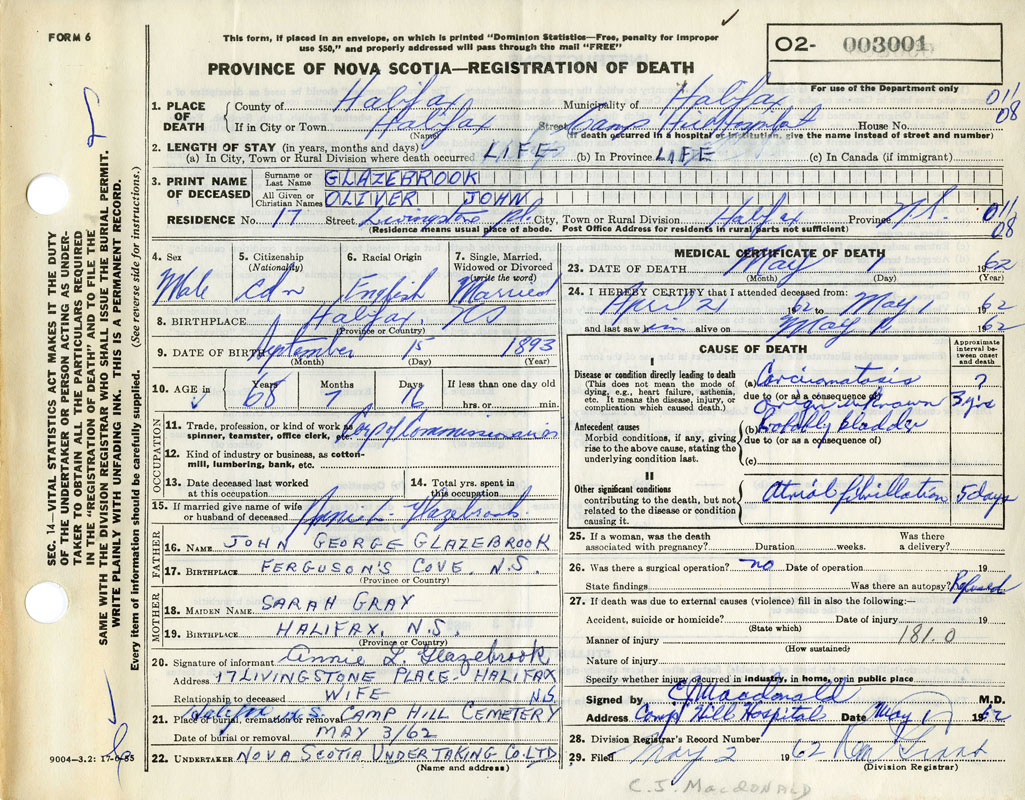 FORM 6
This form, if placed in an envelope, on which is printed "Dominion Statistics—Free, penalty for improper
use $50," and properly addressed will pass through the mail "FREE"
PROVINCE OF NOVA SCOTIA—REGISTRATION OF DEATH
O2- 003001
For use of the Department only
011
08
1. PLACE OF DEATH
County of Halifax Municipality of Halifax
If in City or Town Halifax Street Camp Hill Hospital House No.
(Name) (If death occurred in a hospital or institution, give the name instead of street and number)
2. LENGTH OF STAY (in years, months and days)
(a) In City, Town or Rural Division where death occurred LIFE (b) In Province LIFE (c) In Canada (if immigrant)
3. PRINT NAME OF DECEASED
Surname or Last Name GLAZEBROOK
All Given or Christian Names OLIVER JOHN
RESIDENCE No. 17 Street Livingstone Pl. City, Town or Rural Division Halifax Province N.S.
(Residence means usual place of abode. Post Office Address for residents in rural parts not sufficient)
011
08
4. Sex Male
5. Citizenship (Nationality) Cdn
6. Racial Origin English
7. Single, Married, Widowed or Divorced (write the word) Married
8. BIRTHPLACE Halifax, NS
(Province or Country)
9. DATE OF BIRTH September 15 1893
(Month) (Day) (Year)
10. AGE in Years 68 Months 7 Days 16 If less than one day old
hrs. or min.
OCCUPATION
11. Trade, profession, or kind of work as spinner, teamster, office clerk, etc. Corp of Commissionaires
12. Kind of industry or business, as cotton-mill, lumbering, bank, etc.
13. Date deceased last worked at this occupation
14. Total yrs. spent in this occupation
15. If married give name of wife or husband of deceased Annie L. Glazebrook
FATHER
16. NAME JOHN GEORGE GLAZEBROOK
17. BIRTHPLACE FERGUSON'S COVE, N.S.
(Province or Country)
MOTHER
18. MAIDEN NAME SARAH GRAY
19. BIRTHPLACE HALIFAX, N.S.
(Province or Country)
20. Signature of informant Annie L. Glazebrook
Address 17 LIVINGSTONE PLACE - HALIFAX
N.S.
Relationship to deceased WIFE
Halifax N.S.
21. Place of burial, cremation or removal CAMP HILL CEMETERY
Date of burial or removal MAY 3/62
22. UNDERTAKER NOVA SCOTIA UNDERTAKING CO. LTD
(Name and address)
MEDICAL CERTIFICATE OF DEATH
23. DATE OF DEATH May 1962
(Month) (Day) (Year)
24. I HEREBY CERTIFY that I attended deceased from:
April 21 1962 to May 1 1962
and last saw him alive on May 1. 1962
CAUSE OF DEATH
Approximate interval between onset and death
I
Disease or condition directly leading to death
(This does not mean the mode of dying, e.g., heart failure, asthenia, etc. It means the disease, injury, or complication which caused death.)
(a) Carcinomatosis ?
due to (or as a consequence of)
origin unknown 3 yrs
Antecedent causes
Morbid conditions, if any, giving rise to the above cause, stating the underlying condition last.
(b) Probably bladder
due to (or as a consequence of)
(c)
II
Other significant conditions
contributing to the death, but not related to the disease or condition causing it.
Atrial fibrillation 5 days
25. If a woman, was the death associated with pregnancy? Duration weeks. Was there a delivery?
26. Was there a surgical operation? no Date of operation 19
State findings Was there an autopsy? Refused
27. If death was due to external causes (violence) fill in also the following:—
Accident, suicide or homicide? Date of injury 19
(State which)
Manner of injury 181.0
(How sustained)
Nature of injury
Specify whether injury occurred in industry, in home, or in public place
Signed by C J Macdonald M.D.
Address Camp Hill Hospital Date May 1 1962
28. Division Registrar's Record Number
29. Filed May 2 1962
(Division Registrar)
C. J. MACDONALD
9004-3.2: 17-6-55
SEC. 14—VITAL STATISTICS ACT MAKES IT THE DUTY
OF THE UNDERTAKER OR PERSON ACTING AS UNDER-
TAKER TO OBTAIN ALL THE PARTICULARS REQUIRED
IN THE "REGISTRATION OF DEATH" AND TO FILE THE
SAME WITH THE DIVISION REGISTRAR WHO SHALL ISSUE THE BURIAL PERMIT.
WRITE PLAINLY WITH UNFADING INK. THIS IS A PERMANENT RECORD.
Every item of information should be carefully supplied. (See reverse side for instructions.)